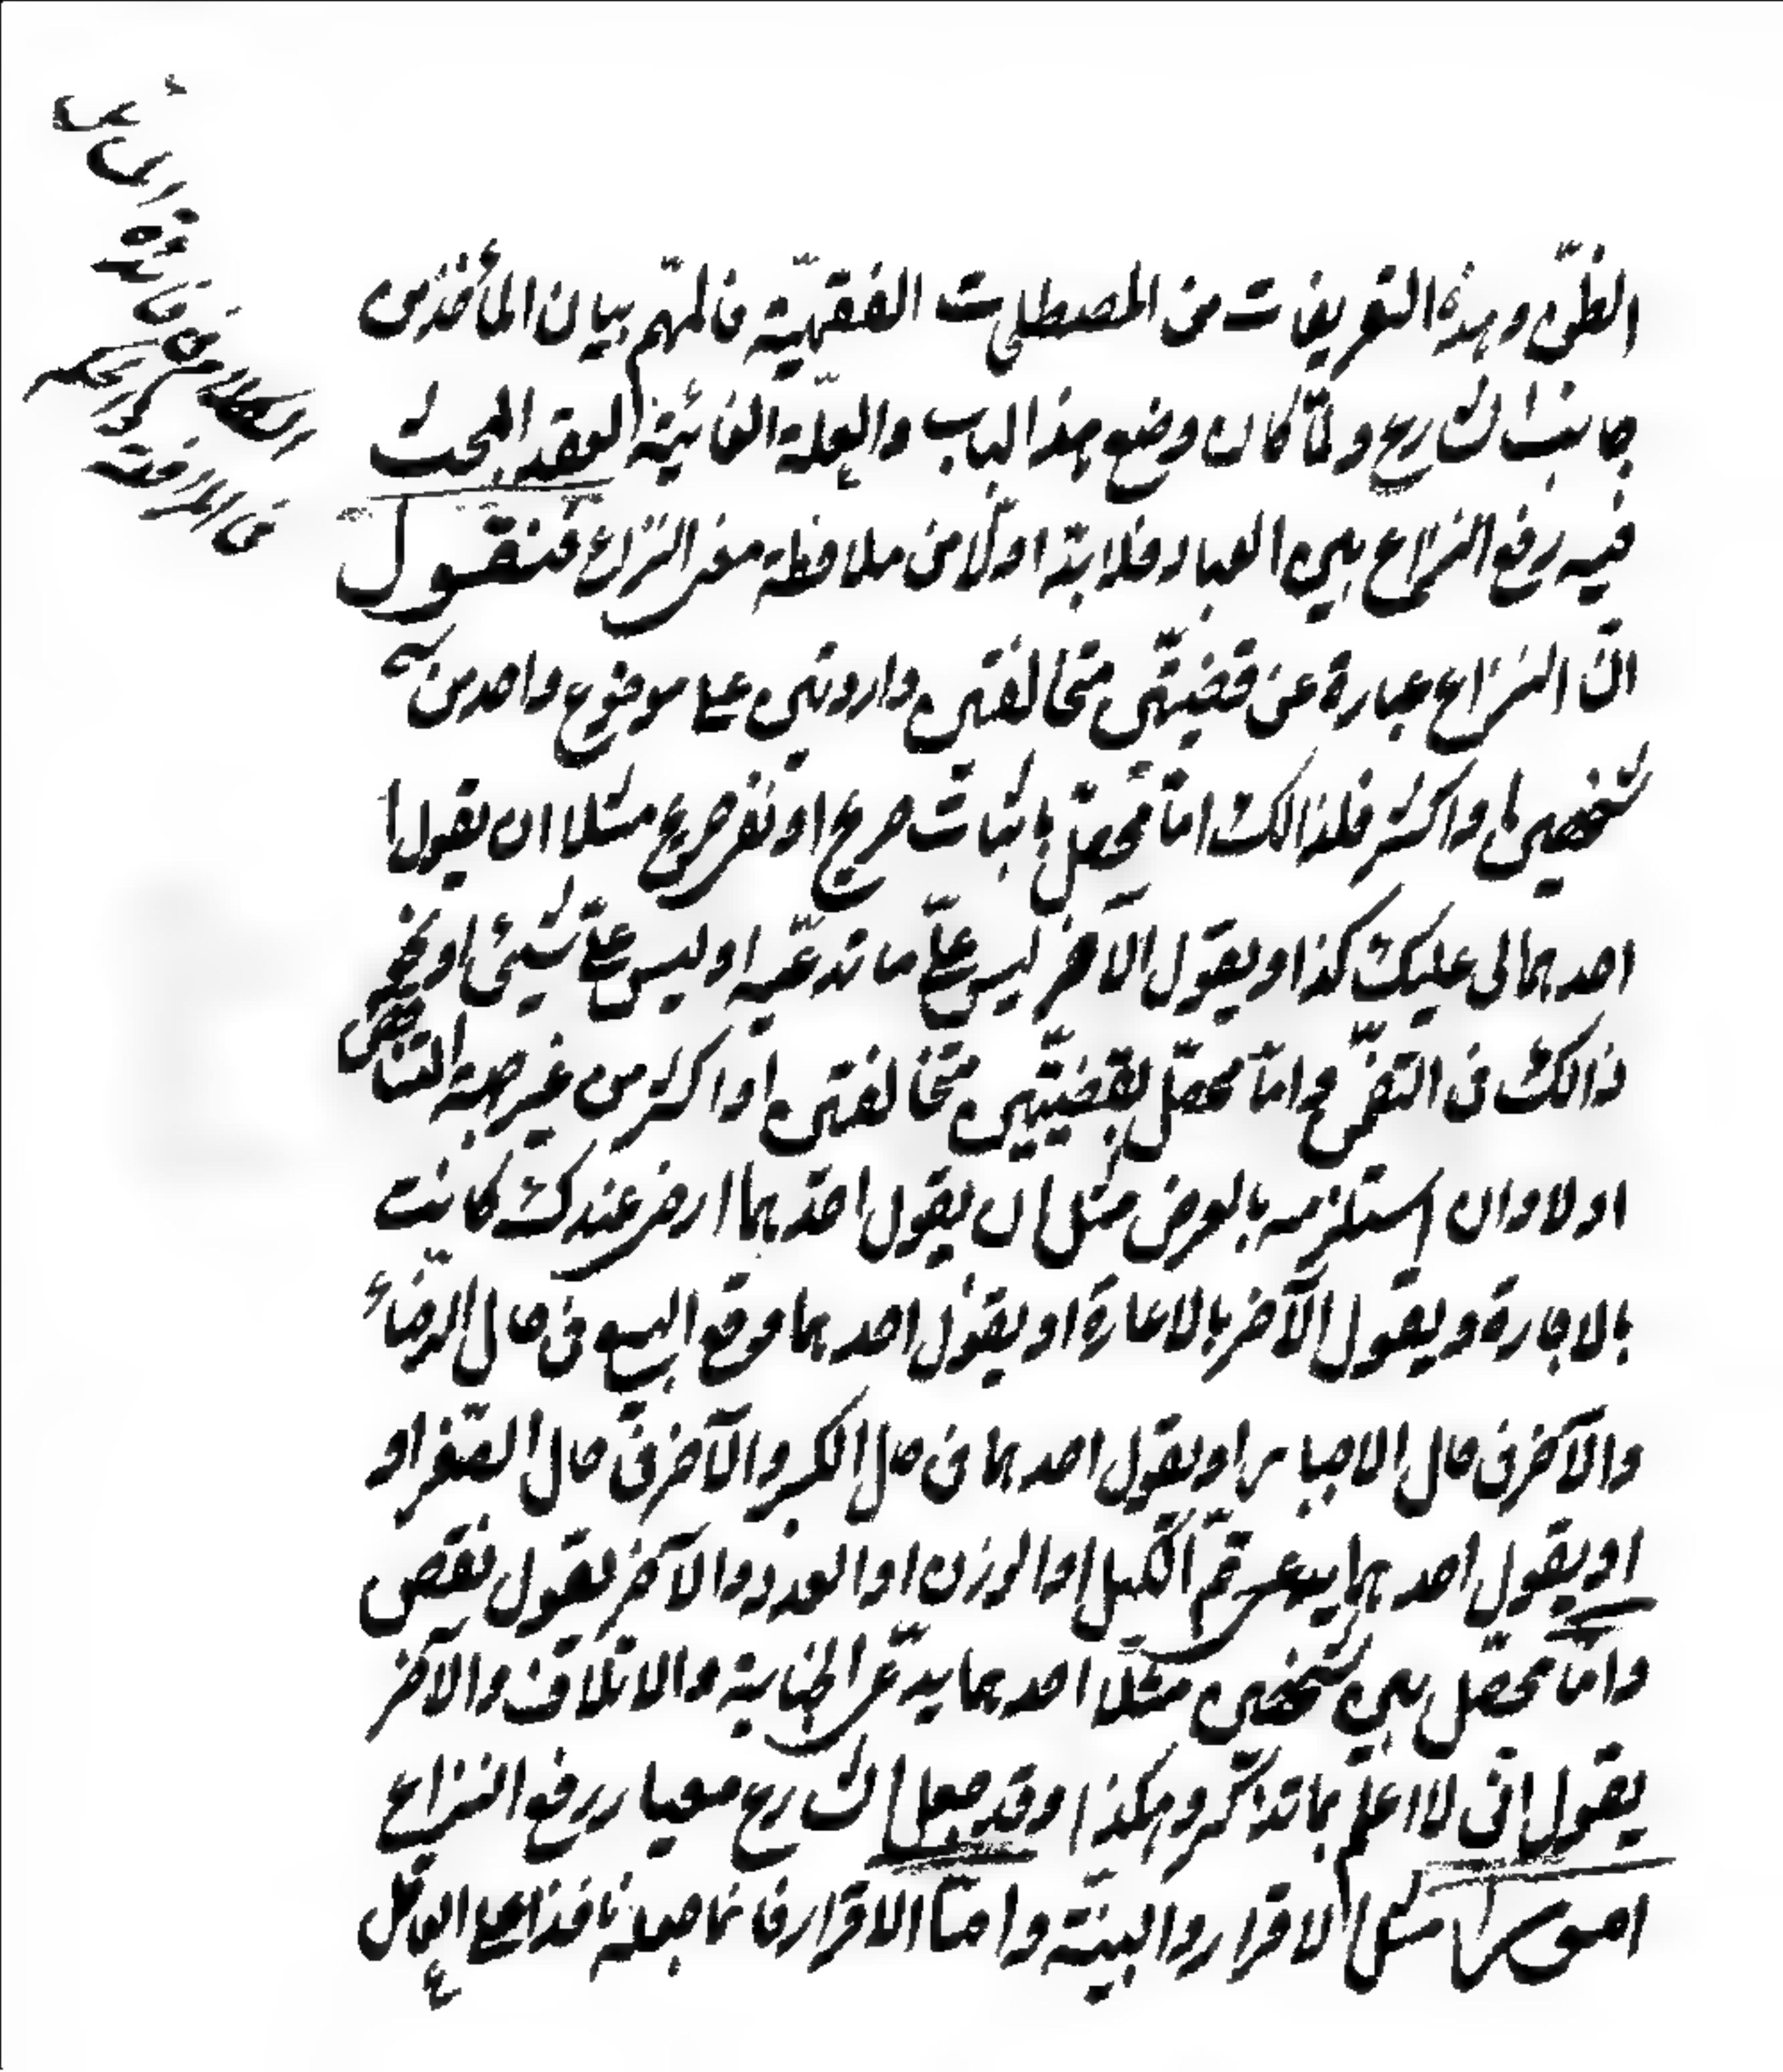 الظنّ وهذه التعريفات من المصطلحات الفقهيّة فالمهمّ بيان المأخذ من
جانب الشارع ولمّا كان وضع هذا الباب والعلّة الغائيّة لعقد المبحث
فيه رفع النزاع بين العباد فلا بدّ اوّلا من ملاحظة معنى النزاع فنقول
انّ النزاع عبارة عن قضيّتين متخالفتين واردتين على موضوع واحد من
شخصين او اكثر فلذالك امّا تحصّل باثبات صريح او نفى صريح مثلا ان يقول
احدهما لى عليك كذا ويقول الآخر ليس علىّ ما تدعّيه او ليس علىّ شيئ او نحو
ذالك فى التقى وامّا تحصّل بقضيّتين متخالفتين او اكثر من غير جهة التناقض
اولا وان استلزمه بالعرض مثل ان يقول احدهما ارضى عندك كانت
بالاجارة ويقول الآخر بالاعارة او يقول احدهما وقع البيع فى حال الرضاء
والآخر فى حال الاجبار او يقول احدهما فى حال الكبر والآخر فى حال الصّغر او
او يقول احدهما يدعى تمّ الكيل او الوزن او العدد والآخر يقول نقص
وامّا تحصّل بين شخصين مثلا احدهما يدّعى الجناية والاتلاف والآخر
يقول انى لا اعلم بما تذاكر وهكذا وقد جعل الشارع معيار رفع النزاع
امورا مثل الاقرار والبينّة وامّا الاقرار فانما جعله نافذا على العاقل
الكلام فى فائدة
فى المرافعة والحكم